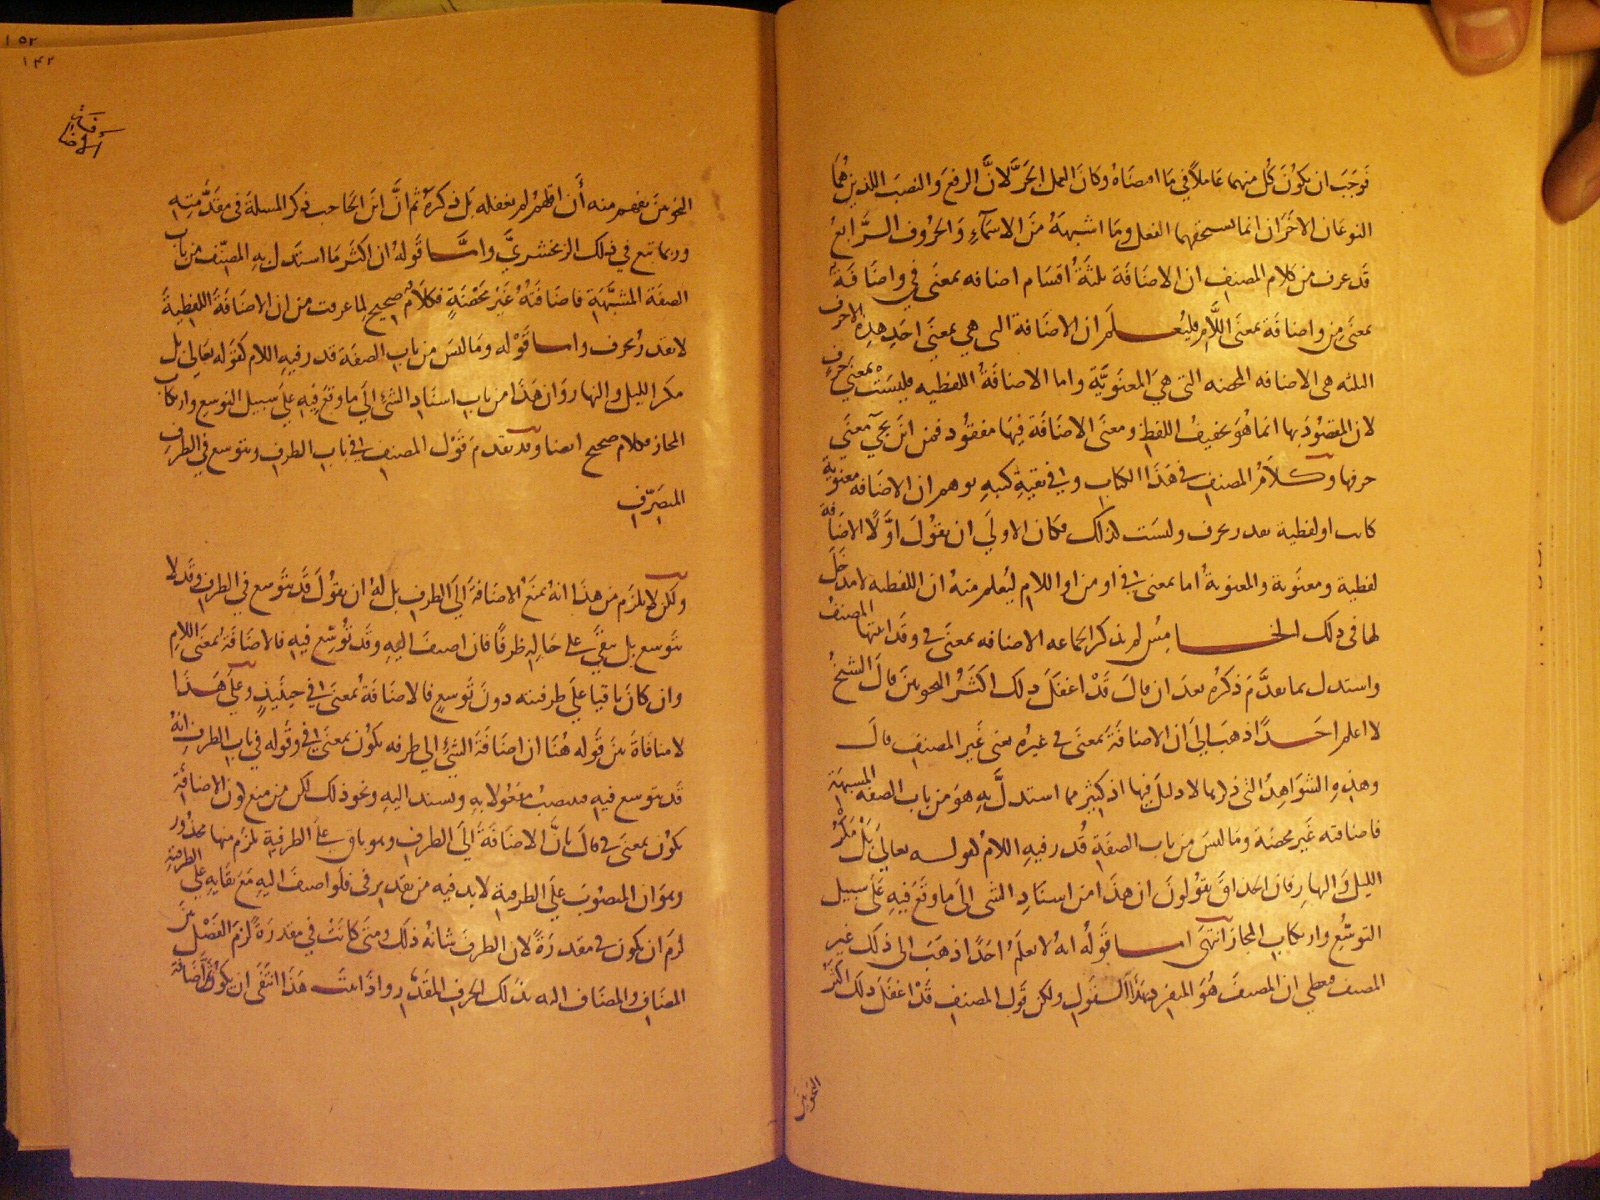 فوجب ان يكون كل منهما عاملاً في ما اقتضاه وكان العمل الجر لان الرفع والنصب اللذين هما
النوعان الاخران انما يستحقهما الفعل وما اشبهه من الاسماء والحروف الرابع
قد عرف من كلام المصنف ان الاضافة ثلثة اقسام اضافه بمعنى في واضافة
بمعنى من واضافة بمعنى اللام فليعلم ان الاضافة التى هي بمعنى احد هذه الاحرف
الثلثه هى الاضافه المحضه التى هي المعنوية واما الاضافة اللفظيه فليست بمعنى حرف
لان المقصود بها انما هو تخفيف اللفظ ومعنى الاضافة فيها مفقود فمن اين يجي معنى
حرفها وكلام المصنف في هذا الكتاب وفي بقية كتبه يوهم ان الاضافه معنوية
كانت او لفظية تقدر بحرف وليست كذلك فكان الاولى ان يقول اولا الاضافة
لفظية ومعنوية والمعنوية اما بمعنى في او من او اللام ليعلم منه ان اللفظيه لا مدخل
لها في ذلك الخامس لم يذكر الجماعه الاضافه بمعنى في وقد اثبتها المصنف
واستدل بما تقدم ذكره بعد ان قال قد اغفل ذلك اكثر النحويين قال الشيخ
لا اعلم احدا ذهب الى ان الاضافة بمعنى في غيره يعنى غير المصنف قال
وهذه الشواهد التى ذكرها لا دليل فيها اذ كثير مما استدل به هو من باب الصفه المشبهة
فاضافته غير محضة وما ليس من باب الصفة قدر فيه اللام كقوله تعالى بل مكر
الليل والنهار فان الحذاق يقولون ان هذا من اسناد الشى الى ما وقع فيه على سبيل
التوسع وارتكاب المجاز انتهى اما قوله انه لا يعلم احدا ذهب الى ذلك غير
المصنف فيعطى ان المصنف هو المنفرد بهذا القول ولكن قول المصنف قد اغفل ذلك اكثر
النحويين
١٥٢
١٤٢
الاضافة
النحويين يفهم منه أن اقلهم لم يغفله بل ذكره ثم ان ابن الحاجب ذكر المسلة في مقدمته
وربما تبع في ذلك الزمخشري واما قوله ان اكثر ما استدل به المصنف من باب
الصفة المشبهة فاضافته غير محضة فكلام صحيح لما عرفت من ان الاضافة اللفظية
لا تقدر بحرف واما قوله وما ليس من باب الصفة قدر فيه اللام كقوله تعالى بل
مكر الليل والنهار وان هذا من باب اسناد الشئ الى ما وقع فيه على سبيل التوسع وارتكاب
المجاز فكلام صحيح ايضا وقد تقدم قول المصنف في باب الظرف ويتوسع في الظرف
المتصرف
ولكن لا يلزم من هذا انه يمنع الاضافة الى الظرف بل له ان يقول قد يتوسع في الظرف وقد لا
يتوسع بل يبقى على حاله ظرفا فان اضيف اليه وقد توسع فيه فالاضافة بمعنى اللام
وان كان باقيا على ظرفيته دون توسع فالاضافة بمعنى في حينئذ وعلى هذا
لا منافاة بين قوله هنا ان اضافة الشئ الى ظرفه يكون بمعنى في وقوله في باب الظرف انه
قد يتوسع فيه فينصب مفعولا به ويسند اليه ونحو ذلك لكن من منع كون الاضافة
يكون بمعنى في قال بان الاضافة الى الظرف وهو باق على الظرفية يلزم منها محذور
وهو ان المنصوب على الظرفية لابد فيه من تقدير في فلو اضيف اليه مع بقايه على الظرفية
لزم ان يكون في مقدرة لان الظرف شانه ذلك ومتى كانت في مقدرة لزم الفصل بين
المضاف والمضاف اليه بذلك الحرف المقدر واذا ثبت هذا انتفى ان يكون ثم اضافة